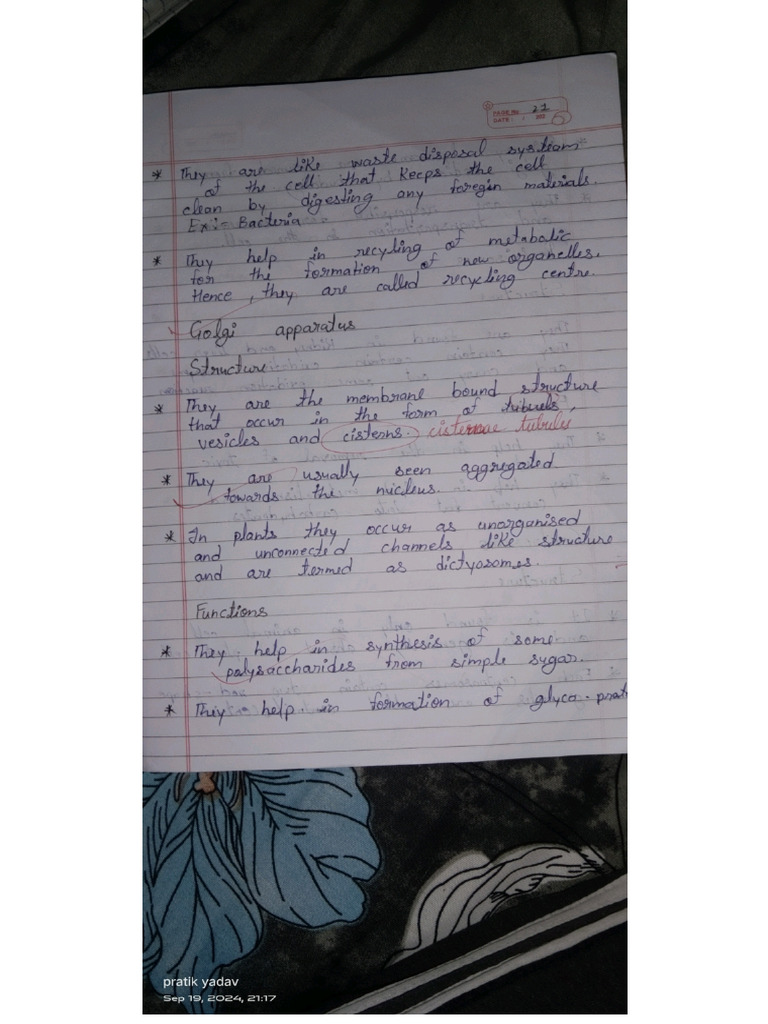 PAGE No. 21
DATE: / /202
* They are like waste disposal systeam
of the cell that Keeps the cell
clean by digesting any foregin materials.
Ex:- Bacteria
* They help in recycling of metabolic
for the formation of new organelles.
Hence, they are called recycling centre.
Golgi apparatus
Structure
* They are the membrane bound structure
that occur in the form of
vesicles and cisterns. cisternae tubules
* They are usually seen aggregated
towards the nucleus.
* In plants they occur as unorganised
and unconnected channels like structure
and are termed as dictyosomes.
Functions
* They help in synthesis of some
polysaccharides from simple sugar.
* They help in formation of glyco-prot
pratik yadav
Sep 19, 2024, 21:17